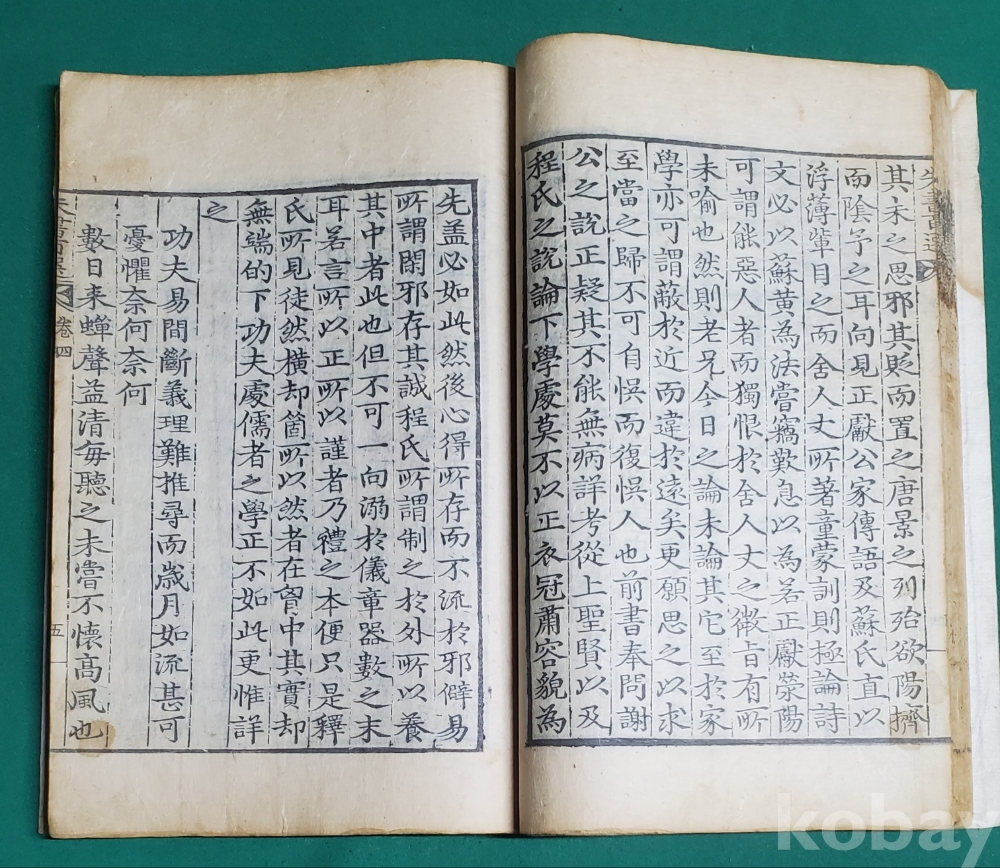 其未之思邪其貶而置之唐景之列殆欲陽擠
而陰予之耳向見正獻公家傳語及蘇氏直以
浮薄輩目之而舍人丈所著童蒙訓則極論詩
文必以蘇黃為法嘗竊歎息以為若正獻滎陽
可謂能惡人者而獨恨於舍人丈之微旨有所
未喻也然則老兄今日之論未論其它至於家
學亦可謂蔽於近而違於遠矣更願思之以求
至當之歸不可自悞而復悞人也前書奉問謝
公之說正疑其不能無病詳考從上聖賢以及
程氏之說論下學處莫不以正衣冠肅容貌為
先盖必如此然後心得所存而不流於邪僻易
所謂閑邪存其誠程氏所謂制之於外所以養
其中者此也但不可一向溺於儀章器數之末
耳若言所以正所以謹者乃禮之本便只是釋
氏所見徒然橫却箇所以然者在胷中其實却
無端的下功夫處儒者之學正不如此更惟詳
之
功夫易間斷義理難推尋而歲月如流甚可
憂懼奈何奈何
數日来蟬聲益清每聽之未嘗不懷高風也
卷四
五
kobay